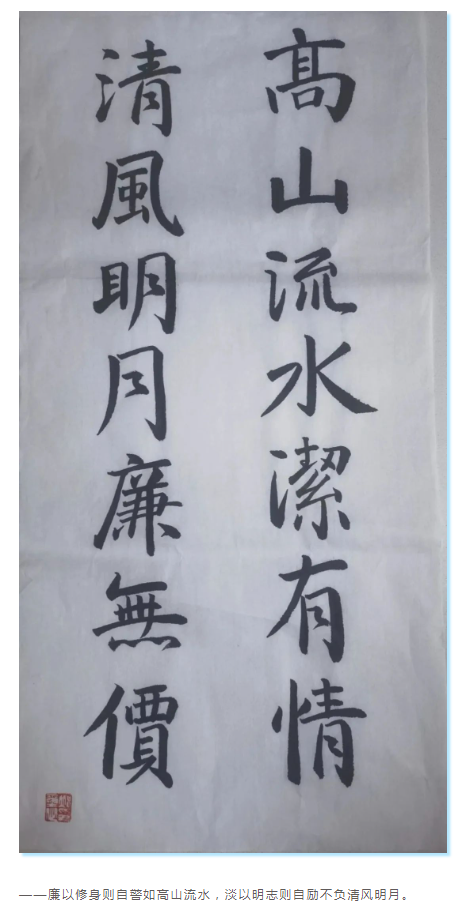 高山流水潔有情
清風明月廉無價
——廉以修身则自警如高山流水，淡以明志则自励不负清风明月。